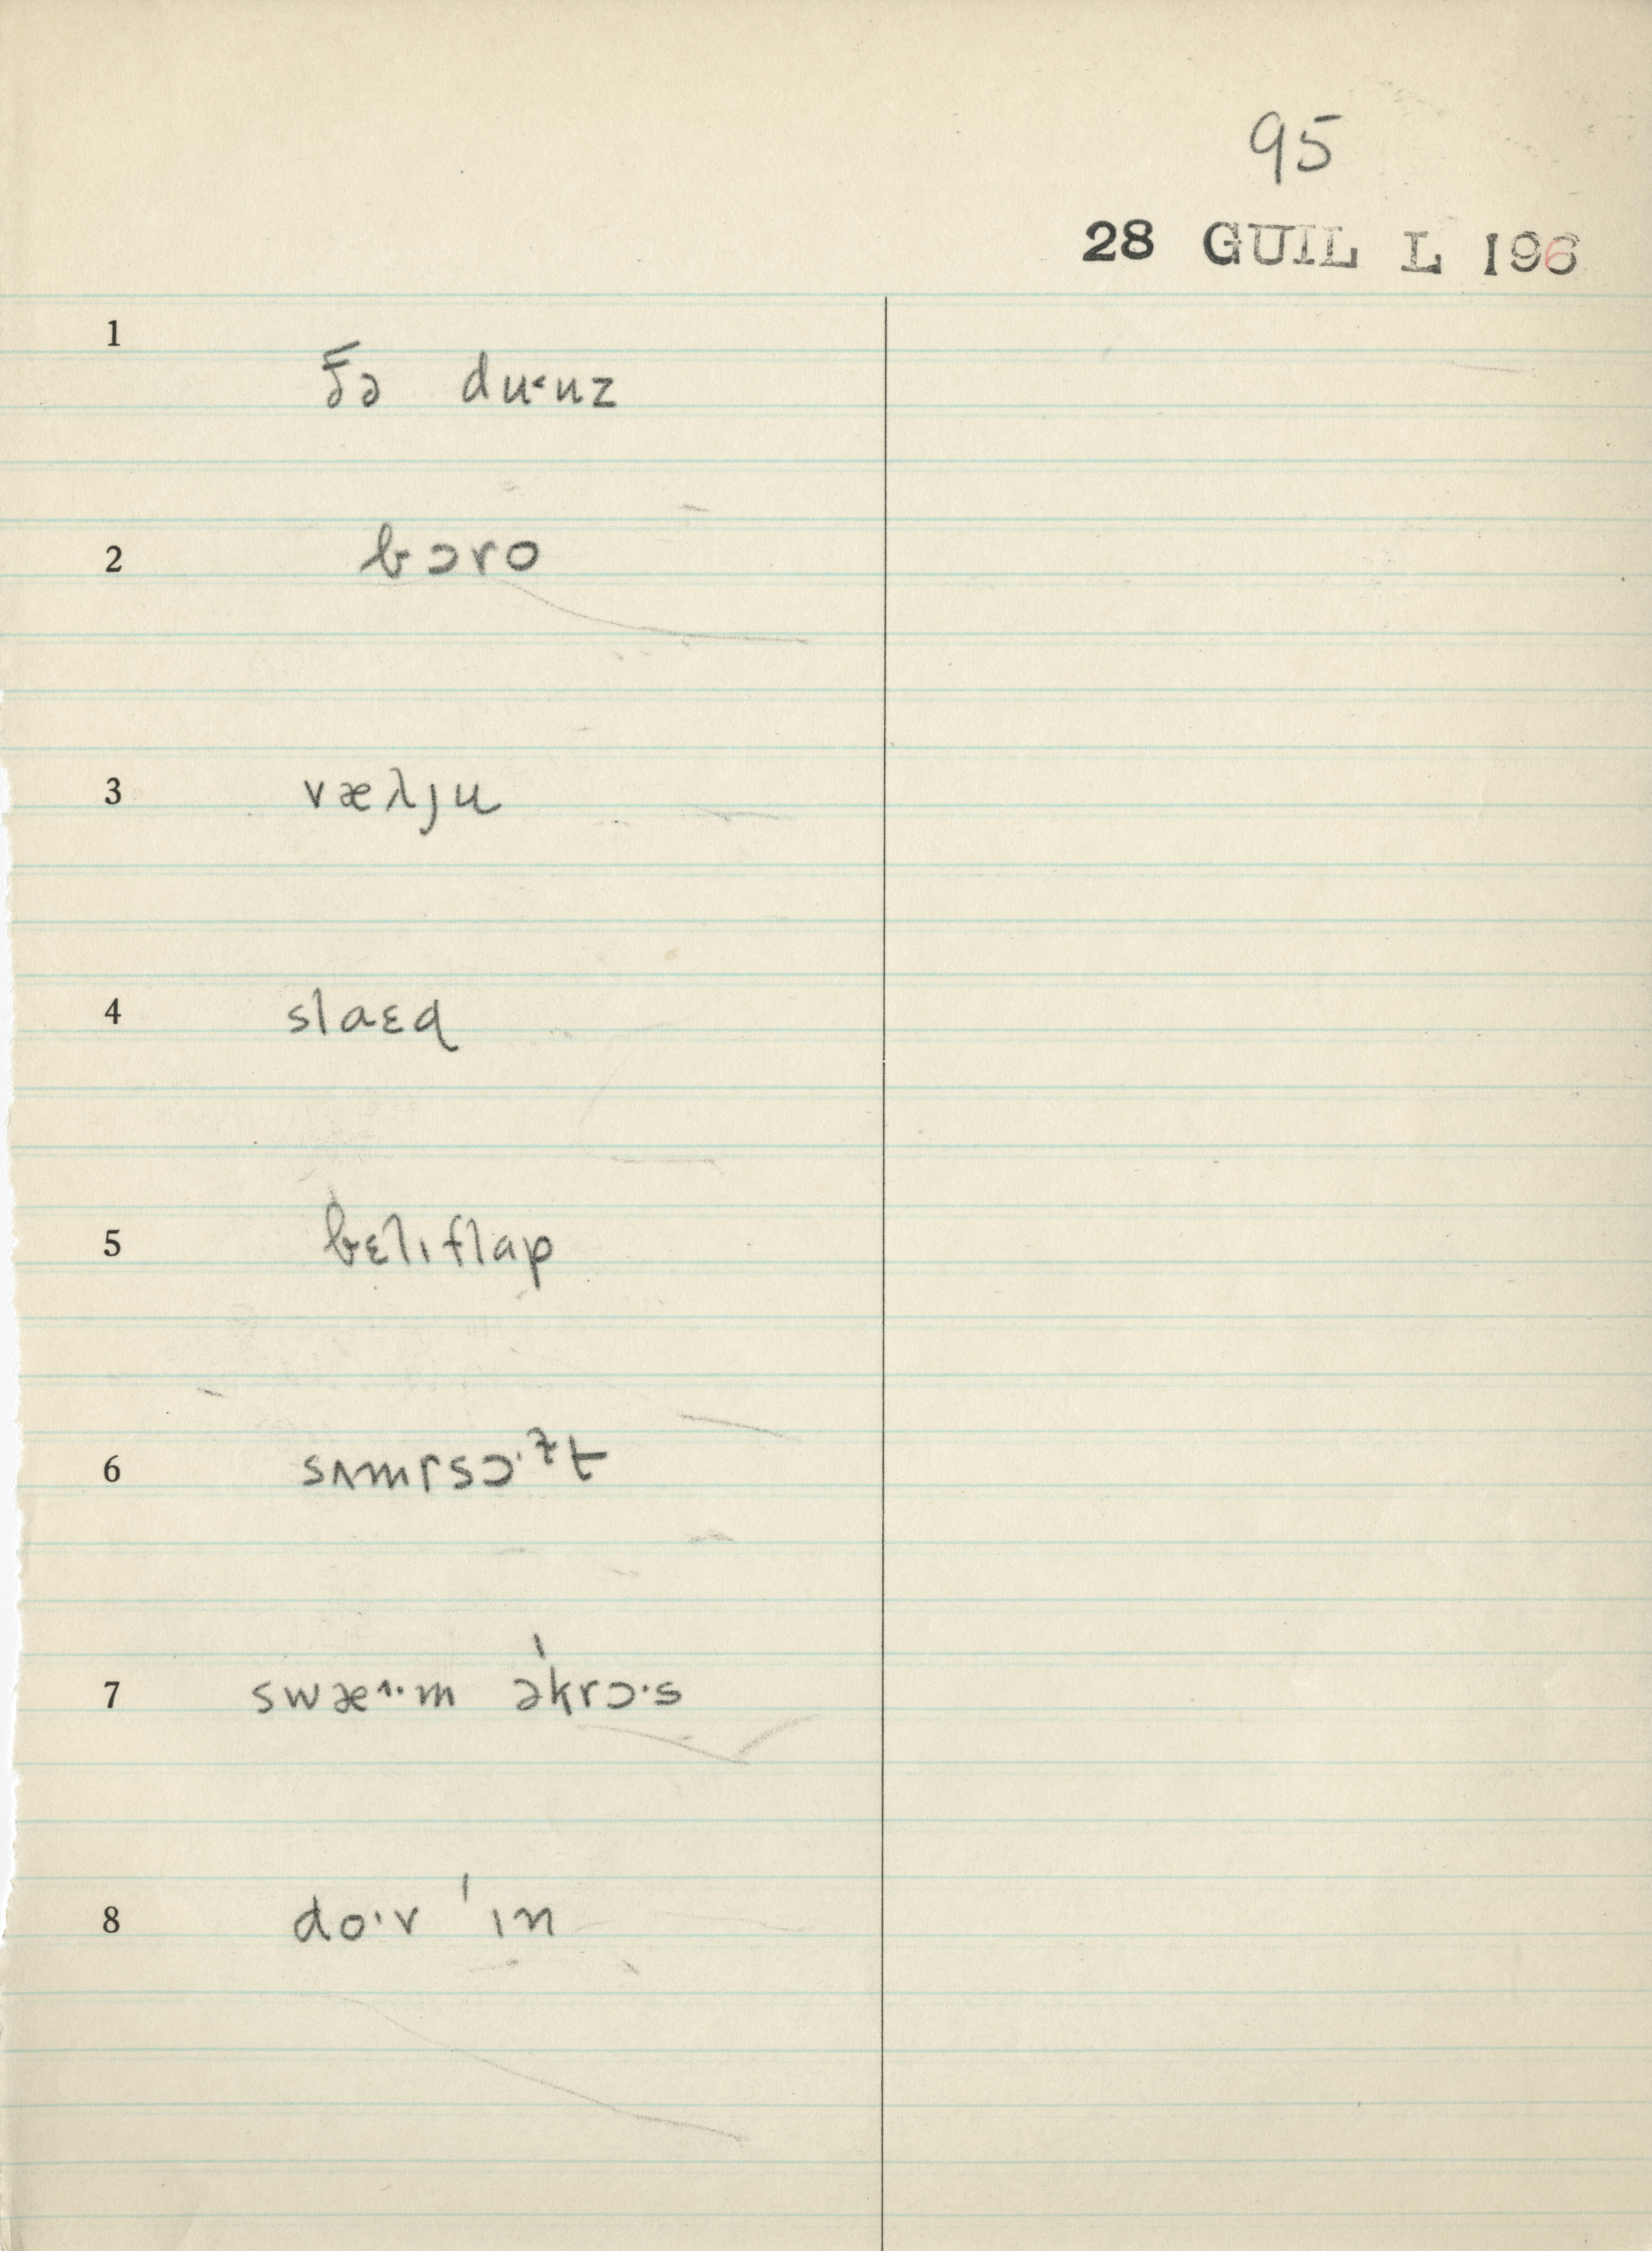 95
28 GUIL L 196
1 ðə du˂uz
2 bɔro
3 væλju
4 slaɛd
5 bɛlɪflap
6 sʌmɾsɔ·ᶻt
7 swæ^·m ə'krɔ·s
8 do·v 'ɪn